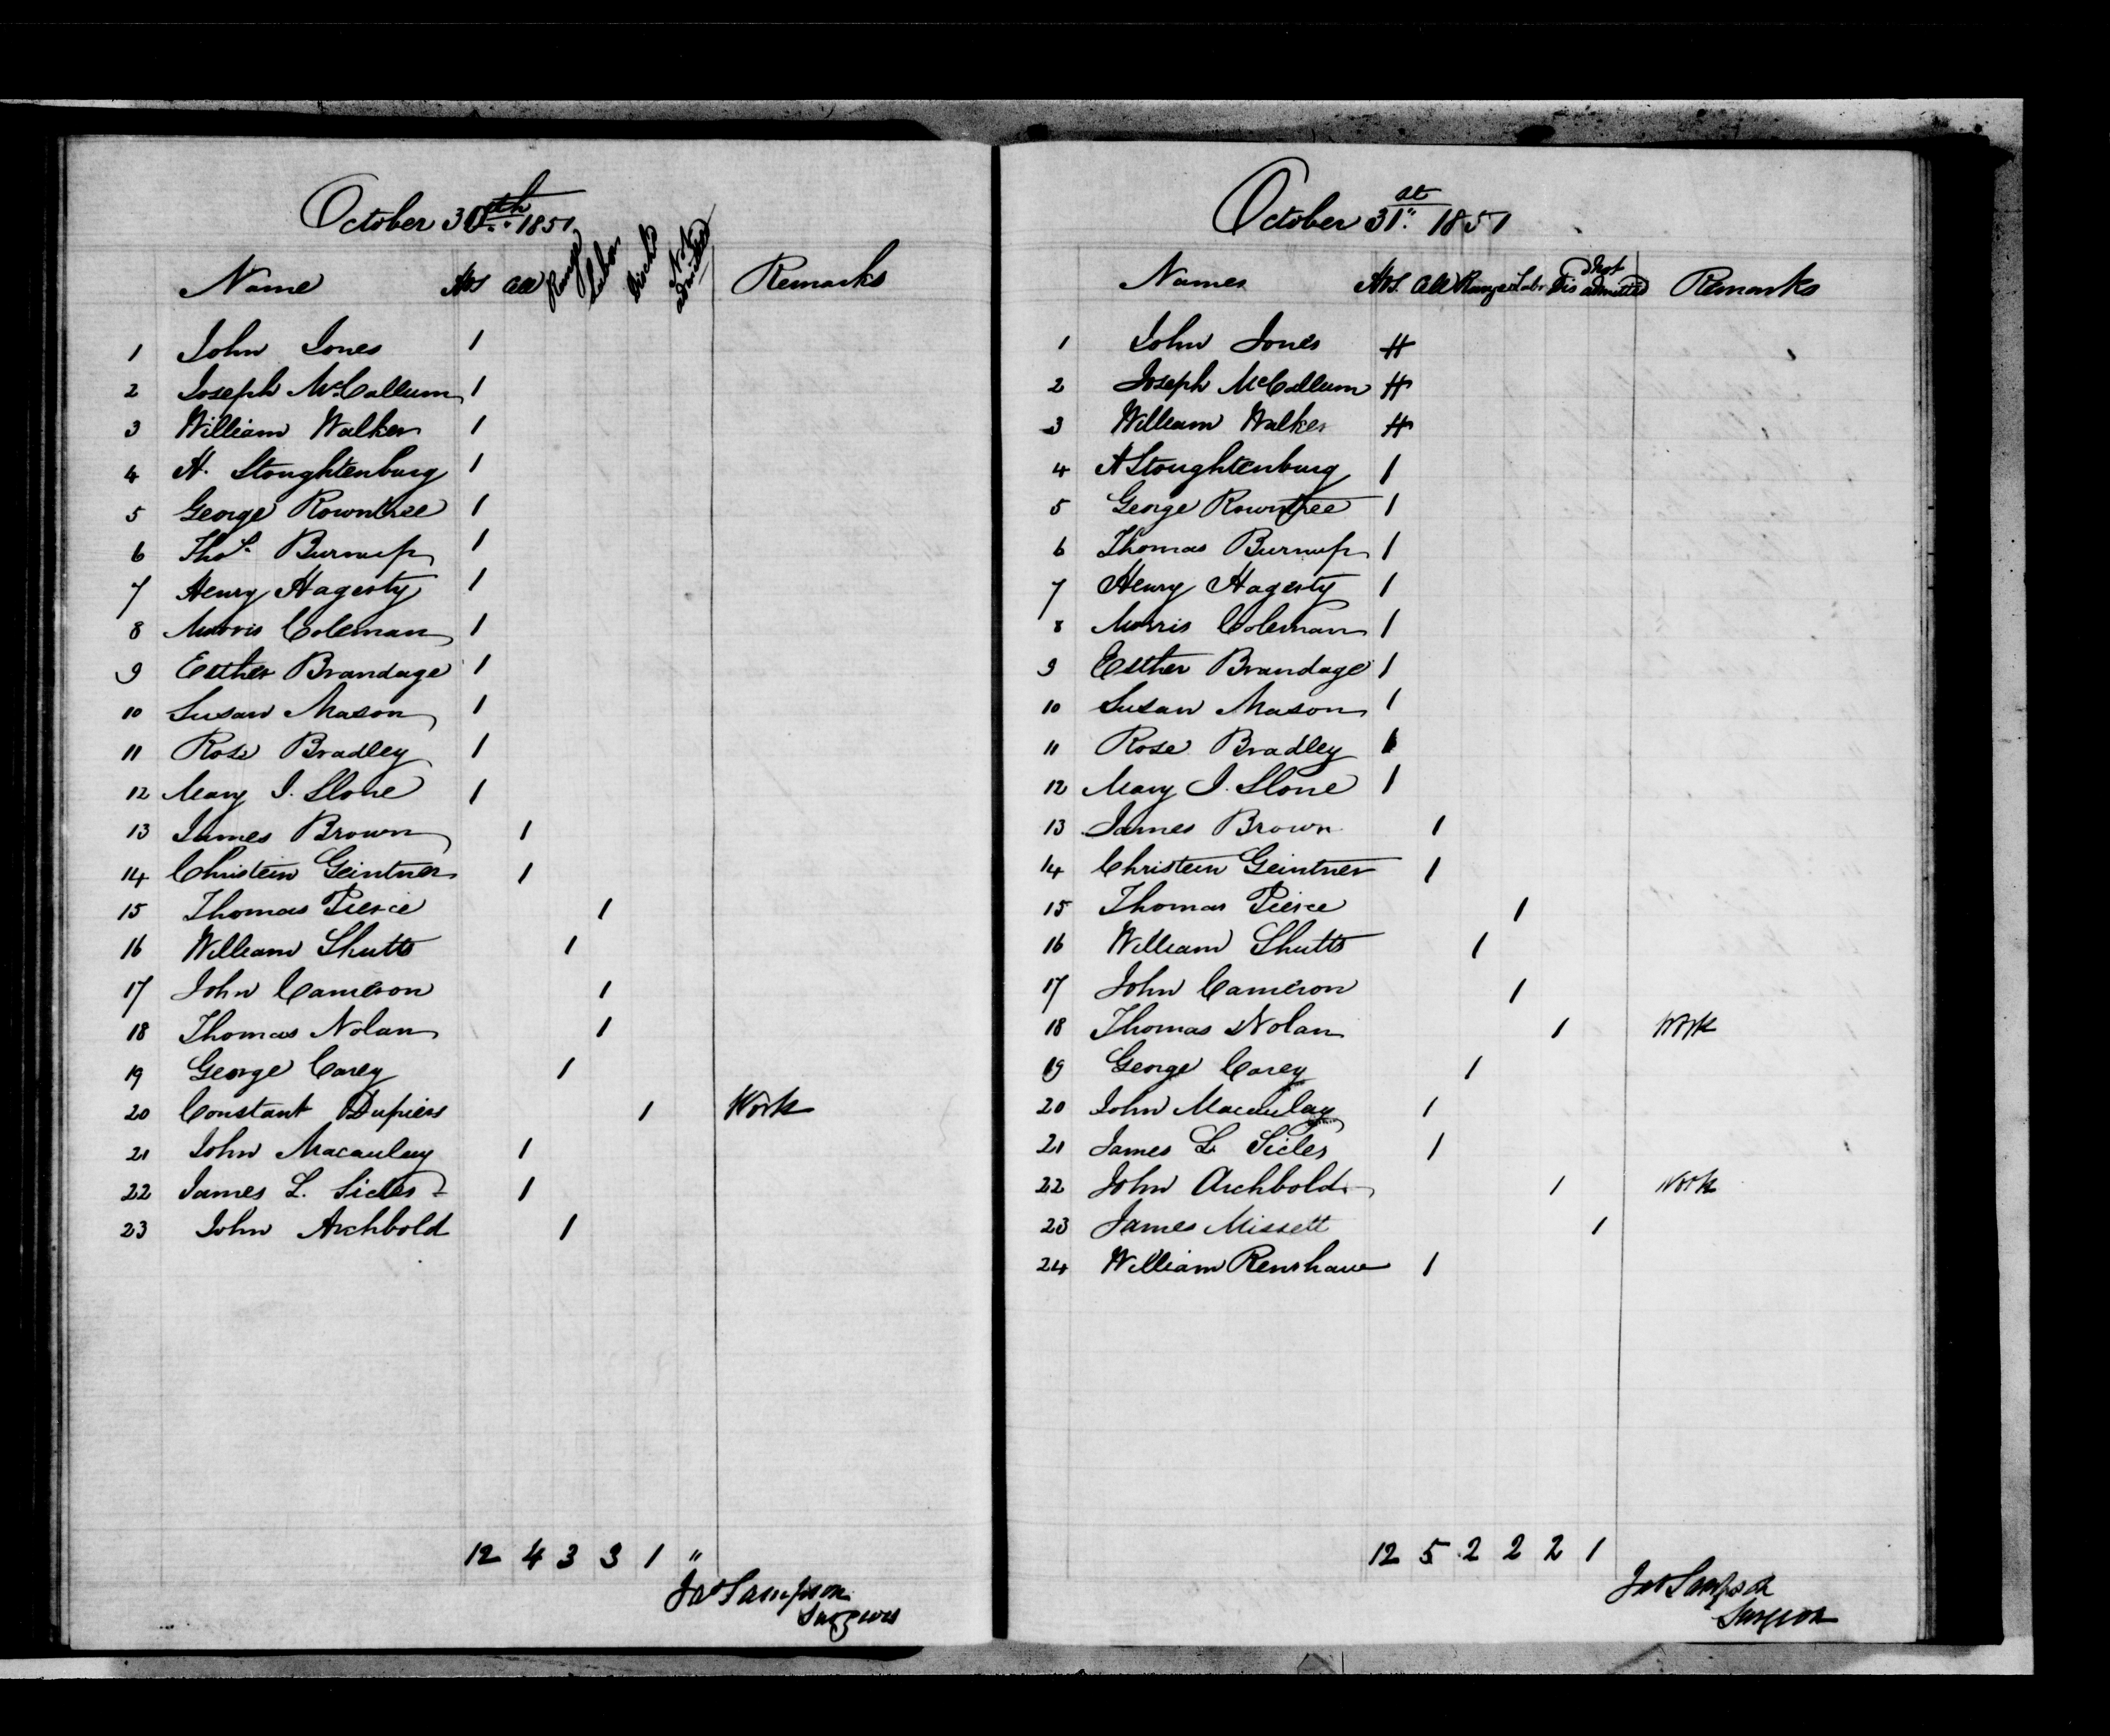 October 30th 1851
Name Hos Cell Range Labor Disch Not admitted Remarks
1 John Jones 1
2 Joseph McCallum 1
3 William Walker 1
4 H. Stoughtenburg 1
5 George Rowntree 1
6 Thos. Burnup 1
7 Henry Hagerty 1
8 Morris Coleman 1
9 Esther Brandage 1
10 Susan Mason 1
11 Rose Bradley 1
12 Mary J. Slone 1
13 James Brown 1
14 Christein Geintner 1
15 Thomas Pierce 1
16 William Shutts 1
17 John Cameron 1
18 Thomas Nolan 1
19 George Carey 1
20 Constant Dupiers 1 Work
21 John Macaulay 1
22 James L. Sicles 1
23 John Archbold 1
12 4 3 3 1 "
Jas Sampson
Surgeon
October 31st 1851
Names Hos. Cell Range Labr Dis Not admitted Remarks
1 John Jones H
2 Joseph McCallum H
3 William Walker H
4 H Stoughtenburg 1
5 George Rowntree 1
6 Thomas Burnup 1
7 Henry Hagerty 1
8 Morris Coleman 1
9 Esther Brandage 1
10 Susan Mason 1
11 Rose Bradley 1
12 Mary J. Slone 1
13 James Brown 1
14 Christein Geintner 1
15 Thomas Pierce 1
16 William Shutts 1
17 John Cameron 1
18 Thomas Nolan 1 Work
19 George Carey 1
20 John Macaulay 1
21 James L. Sicles 1
22 John Archbold 1 Work
23 James Missett 1
24 William Renshaw 1
12 5 2 2 2 1
Jas Sampson
Surgeon